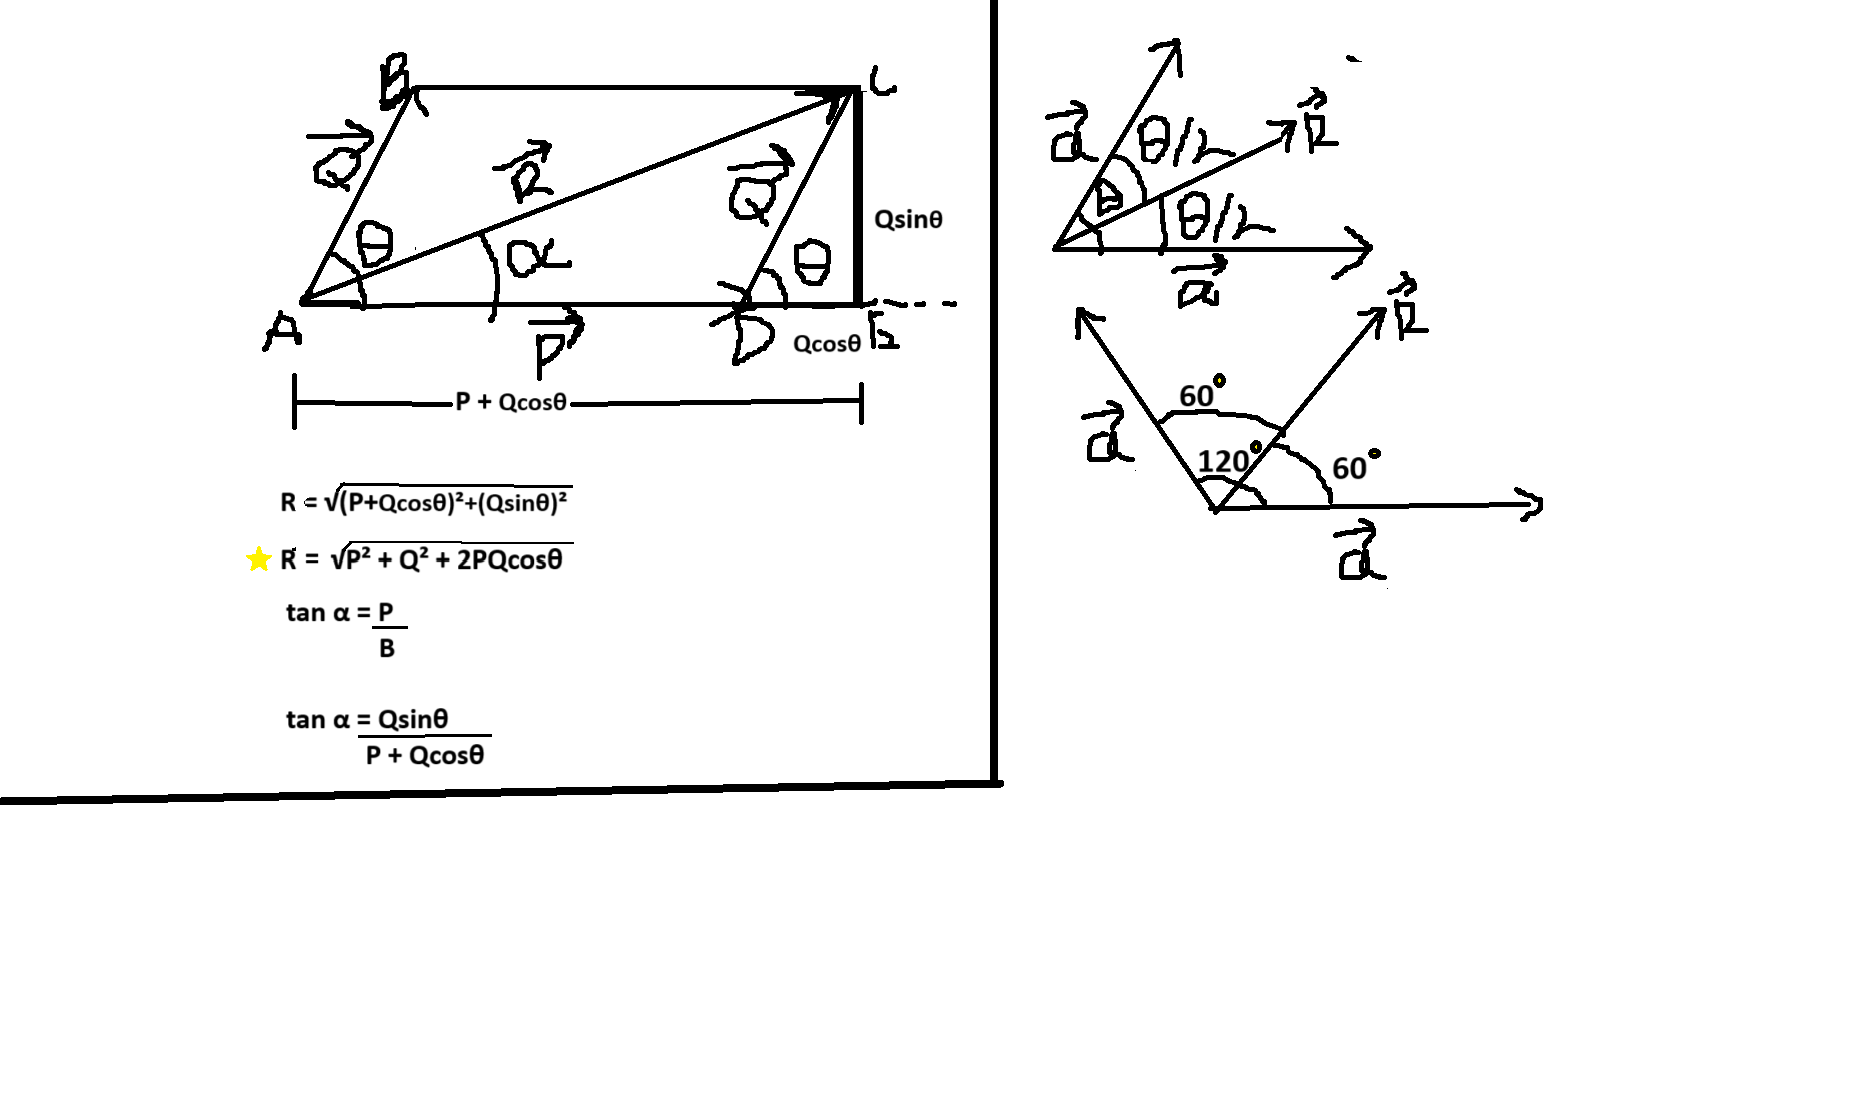 B
C
Q
R
Q
Qsinθ
θ
α
θ
A
P
D
Qcosθ
E
P + Qcosθ
R = √(P+Qcosθ)²+(Qsinθ)²
R = √P² + Q² + 2PQcosθ
tan α = P
B
tan α = Qsinθ
P + Qcosθ
a
θ/2
R
θ
θ/2
a
R
60°
a
120°
60°
a